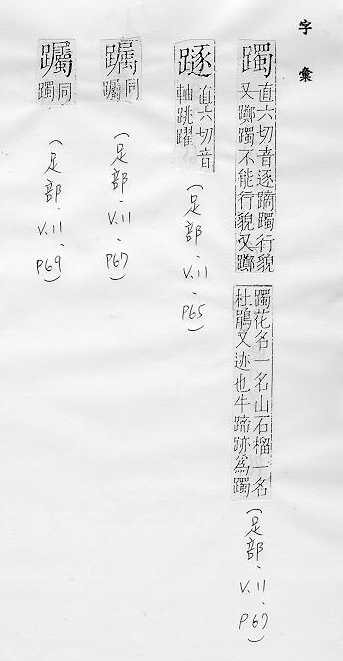 字彙
躅 直六切音逐蹢躅行貌
又躑躅不能行貌又躑
躅花名一名山石榴一名
杜鵑又迹也牛蹄跡為躅
(足部、V.11、P67)
蹱 直六切音
軸跳躍
(足部、V.11、P65)
躅 同
(足部、V.11、P67)
躅 同
(足部、V.11、P69)